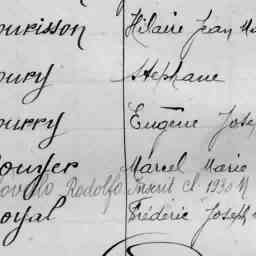 ourisson Hilaire Jean Ma
oury Stéphane
ourry Eugène Jose
ouyer Marcel Marie
Rodolfo Inscrit cl. 1930 N
oyal Frédéric Joseph